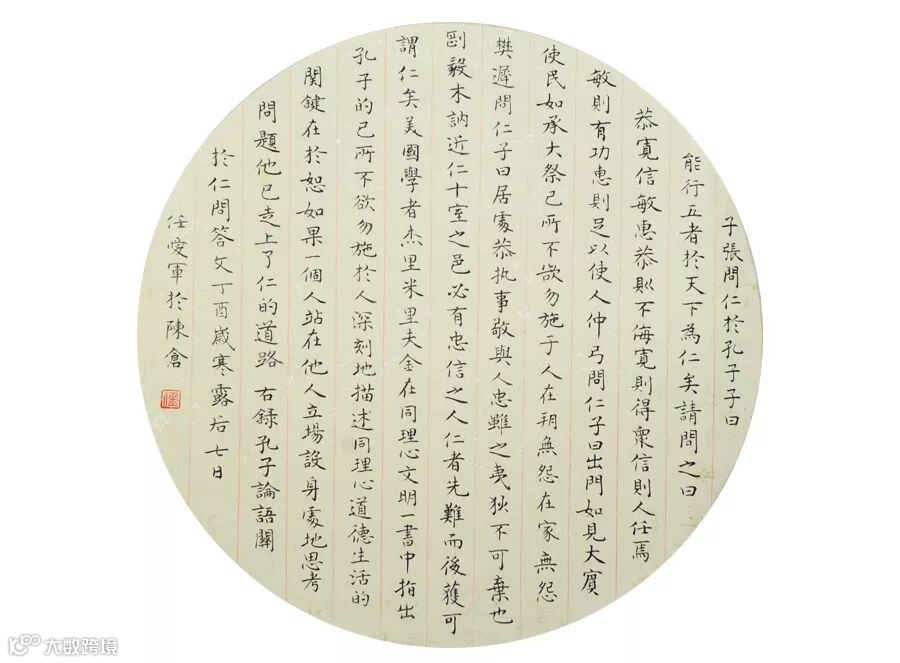 子張問仁於孔子子曰
能行五者於天下為仁矣請問之曰
恭寬信敏惠恭則不海寬則得眾信則人任焉
敏則有功惠則足以使人仲弓問仁子曰出門如見大賓
使民如承大祭己所不欲勿施于人在邦無怨在家無怨
樊遲問仁子曰居處恭执事敬與人忠雖之夷狄不可棄也
剛毅木訥近仁十室之邑必有忠信之人仁者先難而後獲可
謂仁矣美國學者杰里米里夫金在同理心文明一書中指出
孔子的己所不欲勿施於人深刻地描述同理心道德生活的
関鍵在於恕如果一個人站在他人立場設身處地思考
問題他已走上了仁的道路 右録孔子論語關
於仁問答文丁酉歲寒露后七日
任愛軍於陳倉
大数跨境